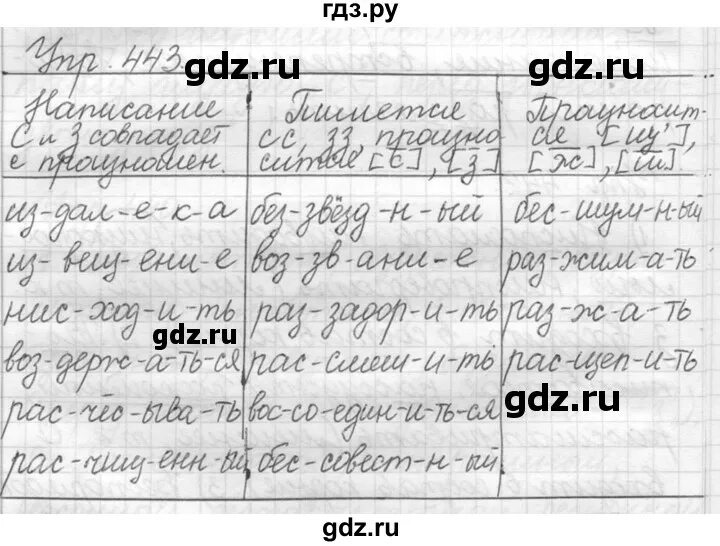 гдз.ру
Упр. 443
Написание С и З совпадает с произношен.
Пишется сс, зз, произносится [с̄], [з̄]
Произносится [щ'], [ж̄], [ш̄]
из-дал-е-к-а без-звёзд-н-ый бес-шум-н-ый
из-вещ-ени-е воз-зв-ани-е раз-жим-а-ть
нис-ход-и-ть раз-задор-и-ть раз-ж-а-ть
воз-держ-а-ть-ся рас-смеш-и-ть рас-щеп-и-ть
рас-чёс-ыва-ть вос-со-един-и-ть-ся
рас-чищ-енн-ый бес-совест-н-ый
gdz.ru
gdz.ru
gdz.ru
gdz.ru
gdz.ru
gdz.ru